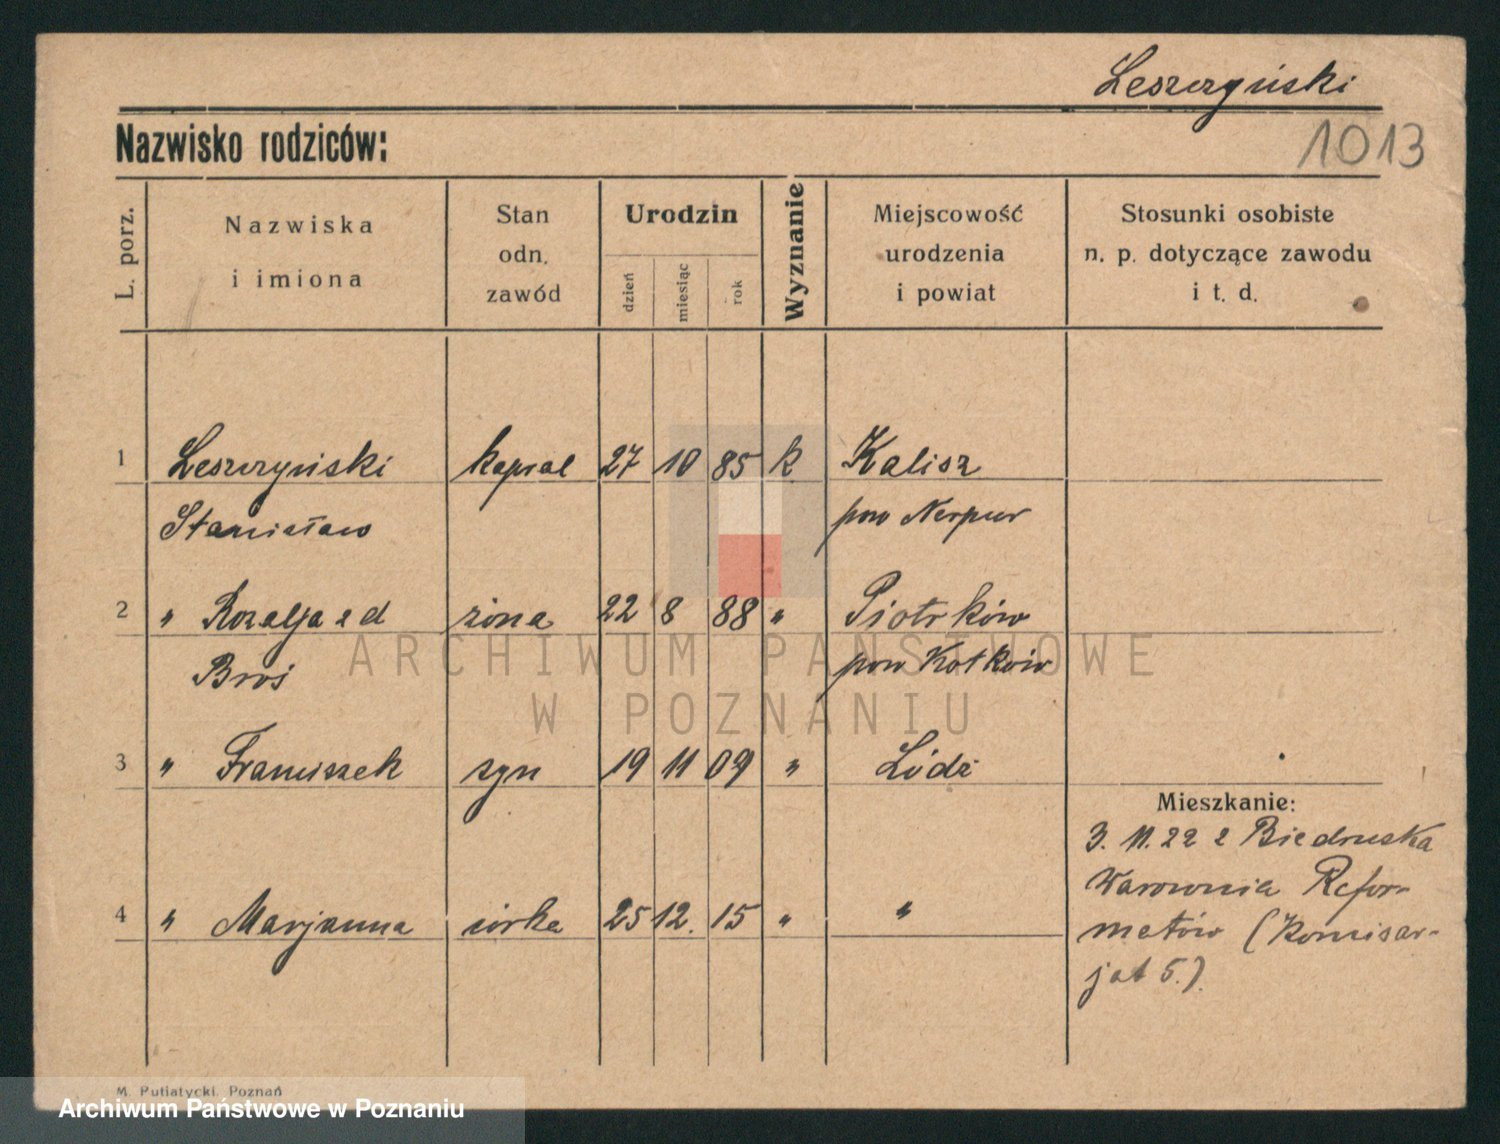 Leszczyński
Nazwisko rodziców:
1013
L. porz.
Nazwiska
i imiona
Stan
odn.
zawód
Urodzin
dzień
miesiąc
rok
Wyznanie
Miejscowość
urodzenia
i powiat
Stosunki osobiste
n. p. dotyczące zawodu
i t. d.
1 Leszczyński kapral 27 10 85 k Kalisz
Stanisław pow
2 " Rozalja z d żona 22 8 88 " Piotrków
Broś pow Kotków
3 " Franciszek syn 19 11 09 " Łódź
Mieszkanie:
3. 11. 22 z Biedruska
Warownia Refor-
4 " Marjanna córka 25 12. 15 " " metów (Komisar-
jat 5.)
ARCHIWUM PAŃSTWOWE
W POZNANIU
M. Putiatycki, Poznań
Archiwum Państwowe w Poznaniu